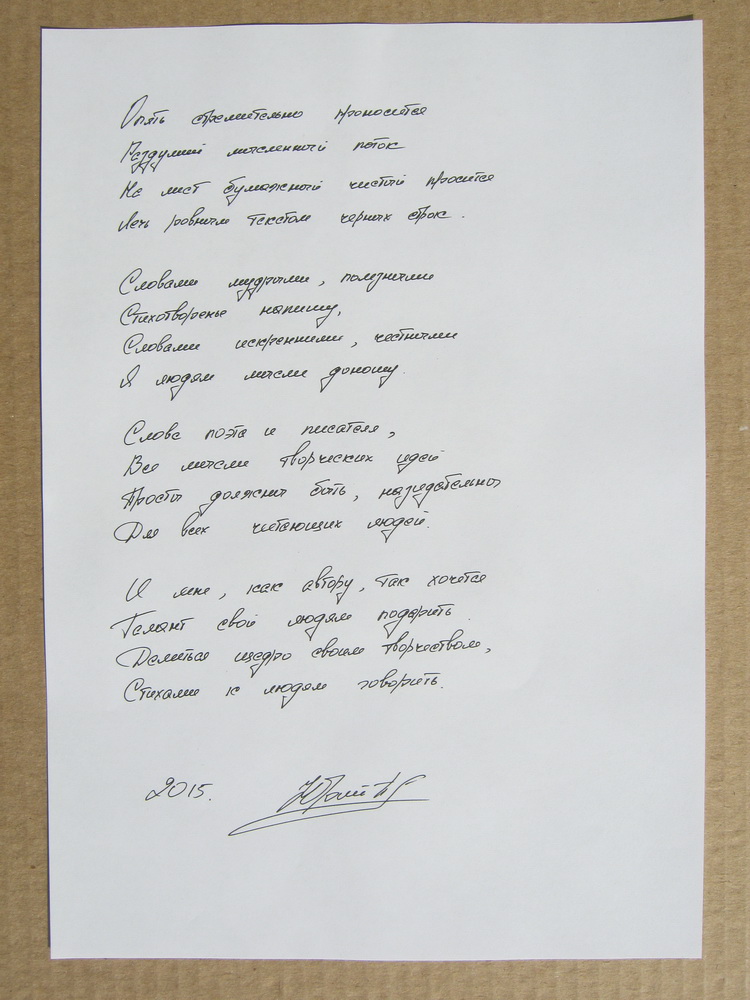 Опять стремительно проносится
Раздумий мысленный поток
На лист бумажный чистый просится
Лечь ровным текстом черных строк.
Словами мудрыми, полезными
Стихотворенье напишу,
Словами искренними, честными
Я людям мысли доношу.
Слова поэта и писателя,
Все мысли творческих идей
Просты должны быть, назидательны
Для всех читающих людей.
И мне, как автору, так хочется
Талант свой людям подарить
Делиться щедро своим творчеством,
Стихами к людям говорить.
2015.